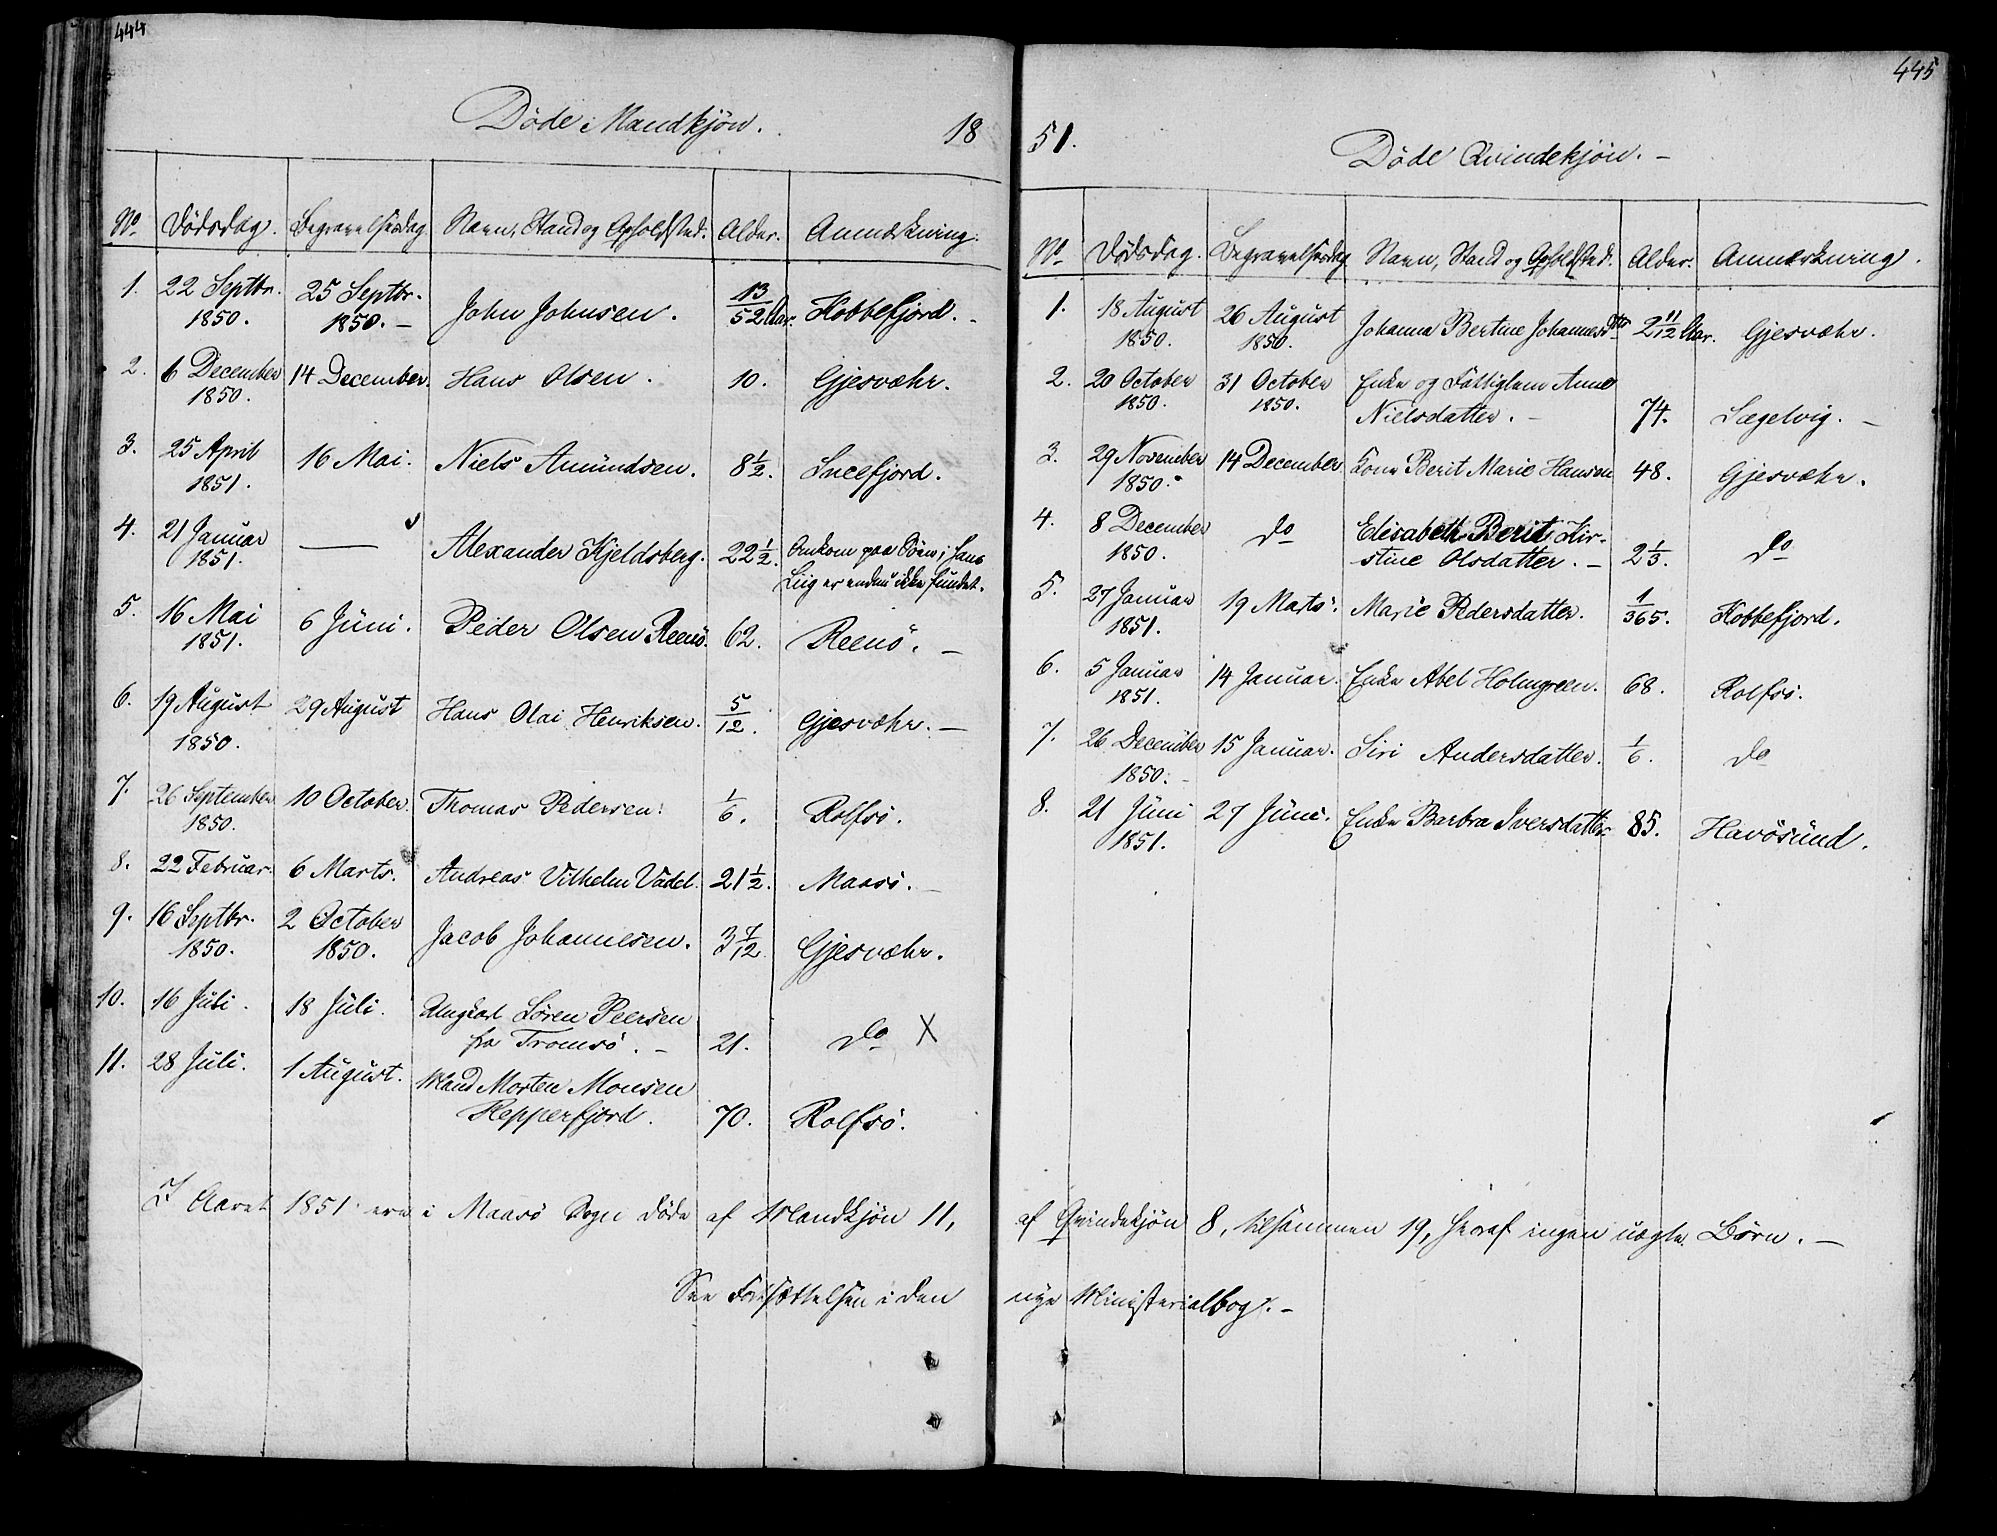 444
Døde Mandkjøn. 18
No Dødsdag. Begravelsesdag Navn, Stand og Opholdsted. Alder. Anmærkning.
1. 22 Septbr. 1850. 25 Septbr. 1850. – John Johnsen. 13/52 Aar. Kobbefjord. –
2. 6 December 1850. 14 December. Hans Olsen. 10. Gjesvæhr.
3. 25 April 1851. 16 Mai. Niels Amundsen. 8 1/2. Sneefjord.
4. 21 Januar 1851. — Alexander Kjeldsberg. 22 1/2. Omkom paa Søen; hans
Liig er endnu ikke fundet.
5. 16 Mai 1851. 6 Juni. Peder Olsen Reenö. 62. Reenö. –
6. 19 August 1850. 29 August Hans Olai Henriksen. 5/12. Gjesvæhr. –
7. 26 September 1850. 10 October. Thomas Pedersen. 1/6. Rolfsö.
8. 22 Februar. 6 Marts. Andreas Vilhelm Vadel. 21 1/2. Maasö. –
9. 16 Septbr. 1850. 2 October 1850. Jacob Johannesen. 3 7/12 Gjesvæhr.
10. 16 Juli. 18 Juli. Ungkarl Sören Peersen
fra Tromsö. – 21. do X
11. 28 Juli. 1 August. Mand Morten Monsen
Repperfjord. 70. Rolfsö.
I Aaret 1851 ere i Maasö Sogn døde af Mandkjøn 11,
See Fortsættelsen i den
445
51. Døde Qvindekjøn. –
No Dødsdag. Begravelsesdag Navn, Stand og Opholdsted. Alder. Anmærkning.
1. 18 August 1850. 26 August 1850. Johanna Bertine Johannesdtr 2 11/12 Aar. Gjesvæhr.
2. 20 October 1850. 31 October 1850. Enke og Fattiglem Anne
Nielsdatter. – 74. Sægelvig. –
3. 29 November 1850. 14 December Kone Berit Marie Hansen 48. Gjesvæhr.
4. 8 December 1850. do Elisabeth Berit Kir-
stine Olsdatter. – 2 1/3. do
5. 27 Januar 1851. 19 Marts. Marie Pedersdatter. 1/365. Kobbefjord.
6. 5 Januar 1851. 14 Januar. Enke Abel Holmgreen. 68. Rolfsö.
7. 26 December 1850. – 15 Januar. Siri Andersdatter. 1/6. do
8. 21 Juni 1851. 27 Juni. Enke Barbra Iversdatter 85. Havösund.
af Qvindekjøn 8, tilsammen 19, heraf ingen uægte Børn. –
nye Ministerialbog. –